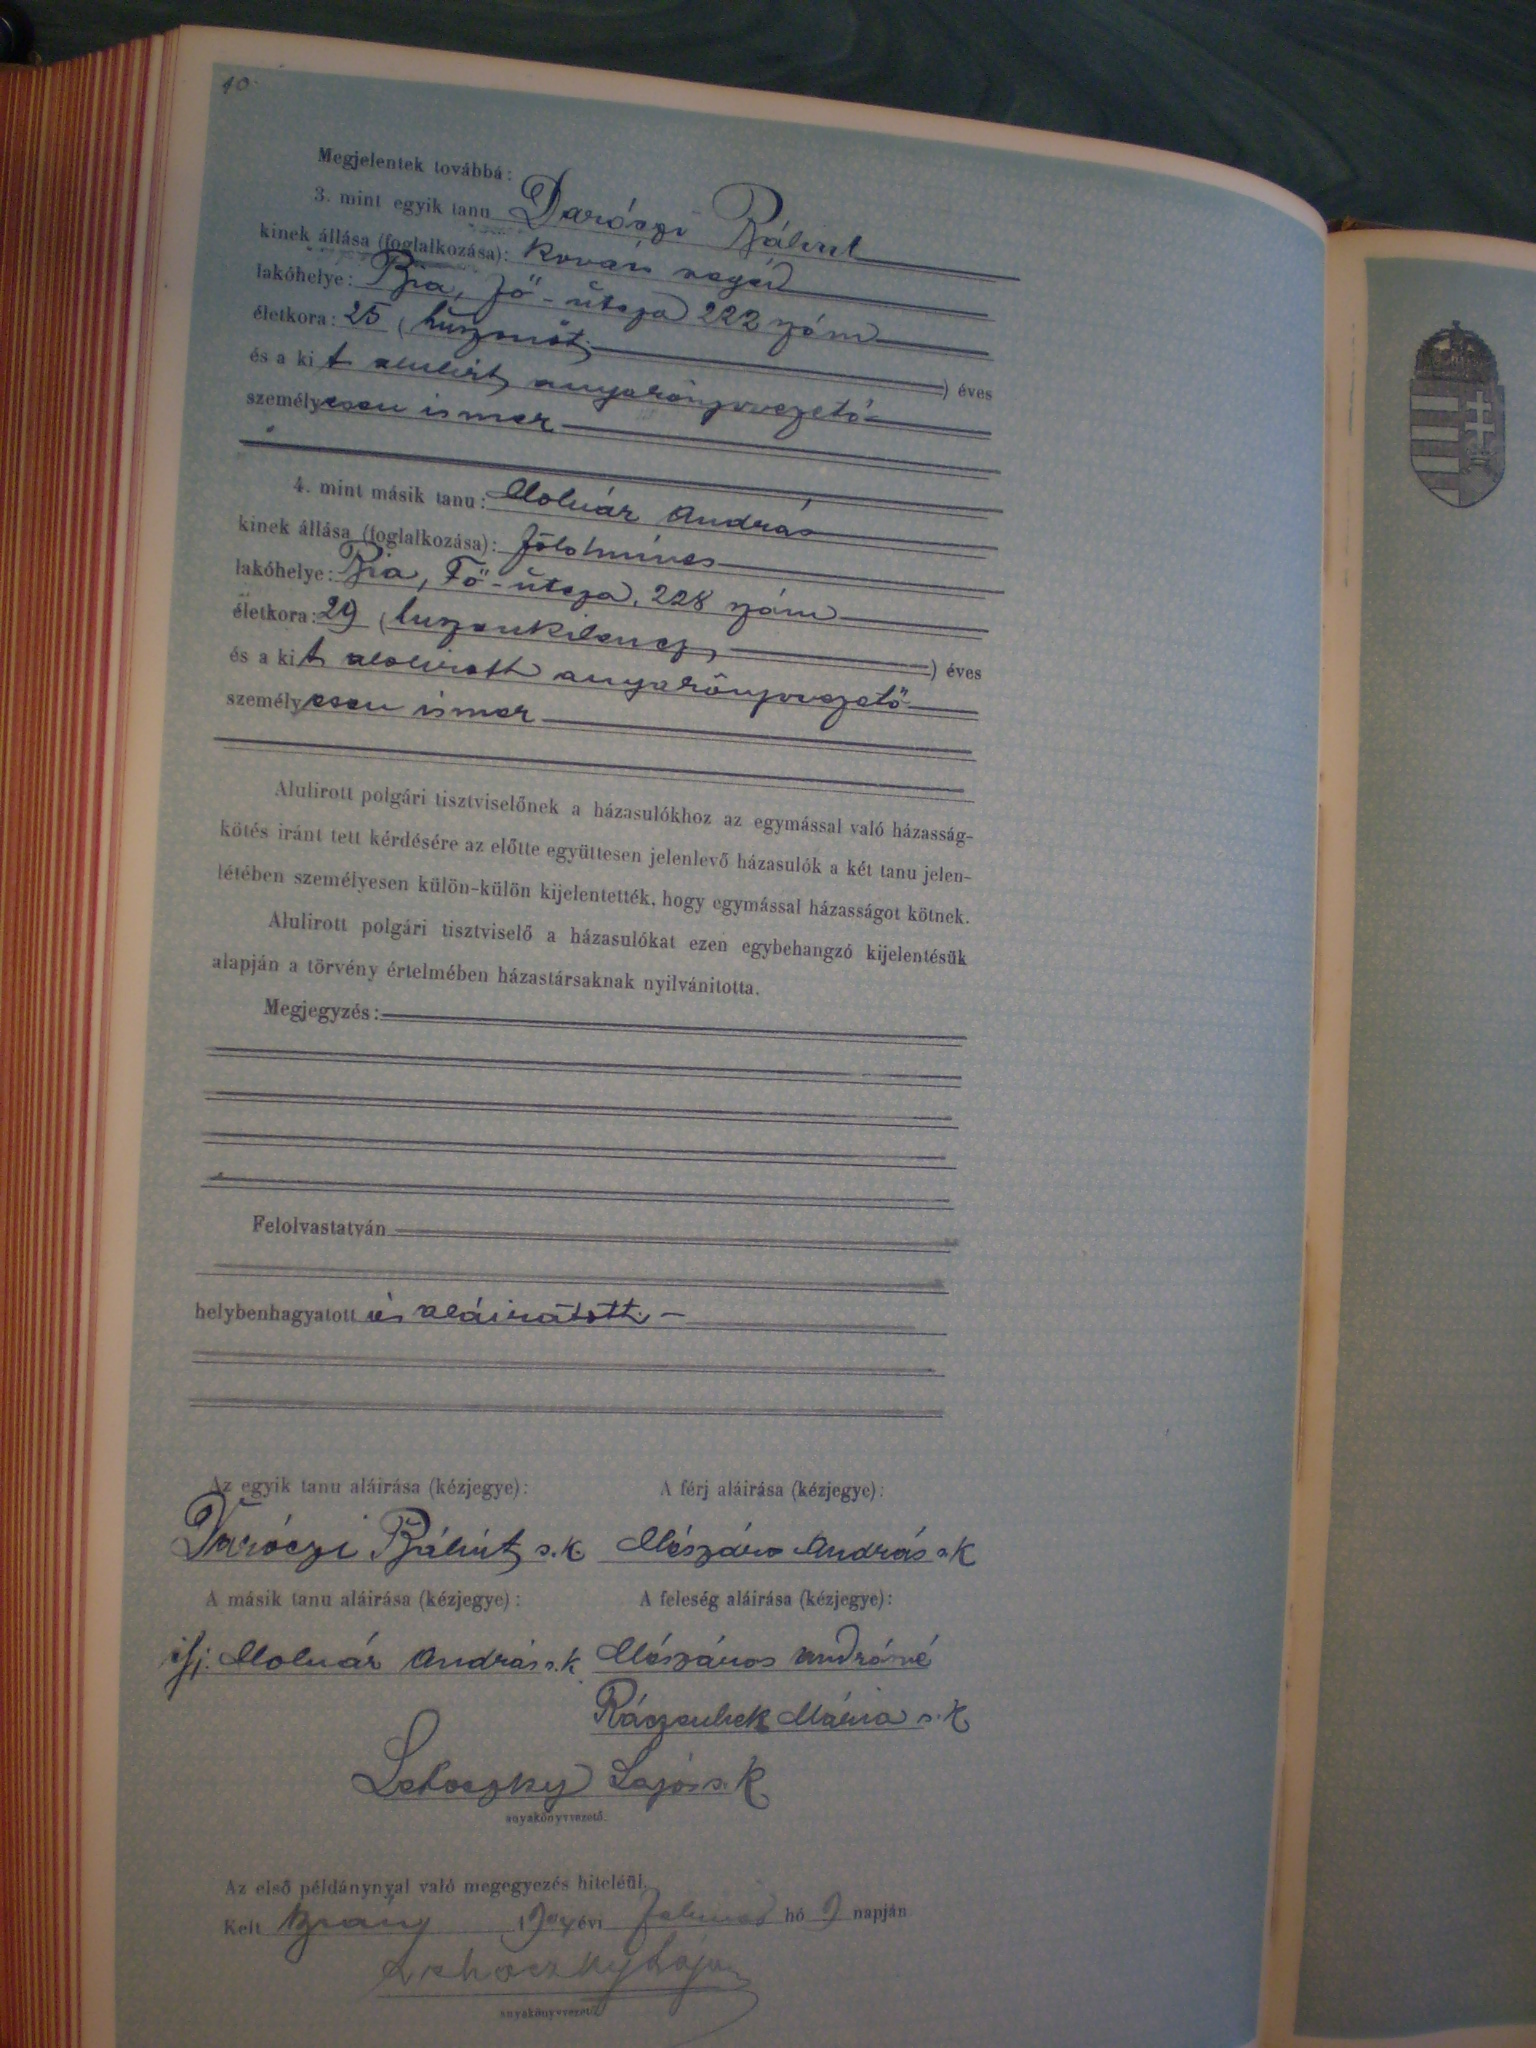 10.
Megjelentek továbbá:
3. mint egyik tanu Daróczi Bálint
kinek állása (foglalkozása): kovács segéd
lakóhelye: Bia, Fő-útcza 222 szám
életkora: 25 (huszonöt ) éves
és a kit alulirt anyakönyvvezető
személyesen ismer
4. mint másik tanu: Molnár András
kinek állása (foglalkozása): földmíves
lakóhelye: Bia, Fő-útcza, 228 szám
életkora: 29 (huszonkilencz ) éves
és a kit alolirott anyakönyvvezető
személyesen ismer
Alulirott polgári tisztviselőnek a házasulókhoz az egymással való házasság-
kötés iránt tett kérdésére az előtte együttesen jelenlevő házasulók a két tanu jelen-
létében személyesen külön-külön kijelentették, hogy egymással házasságot kötnek.
Alulirott polgári tisztviselő a házasulókat ezen egybehangzó kijelentésük
alapján a törvény értelmében házastársaknak nyilvánitotta.
Megjegyzés:
Felolvastatván
helybenhagyatott és aláiratott. —
Az egyik tanu aláirása (kézjegye): A férj aláirása (kézjegye):
Daróczi Bálint s.k. Mészáros András s.k
A másik tanu aláirása (kézjegye): A feleség aláirása (kézjegye):
ifj. Molnár András s.k. Mészáros Andrásné
Mária s.k
Lehoczky Lajos s.k
anyakönyvvezető.
Az első példánynyal való megegyezés hiteléül.
Kelt 1904 évi február hó 9 napján
Lehoczky Lajos
anyakönyvvezető.